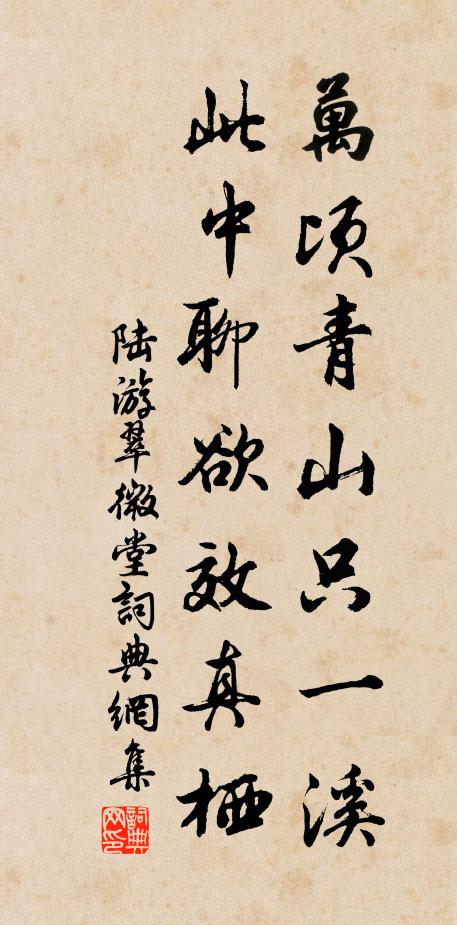 萬頃青山只一溪
此中聊欲效真栖
陆游翠微堂詞典網集
詞典网印